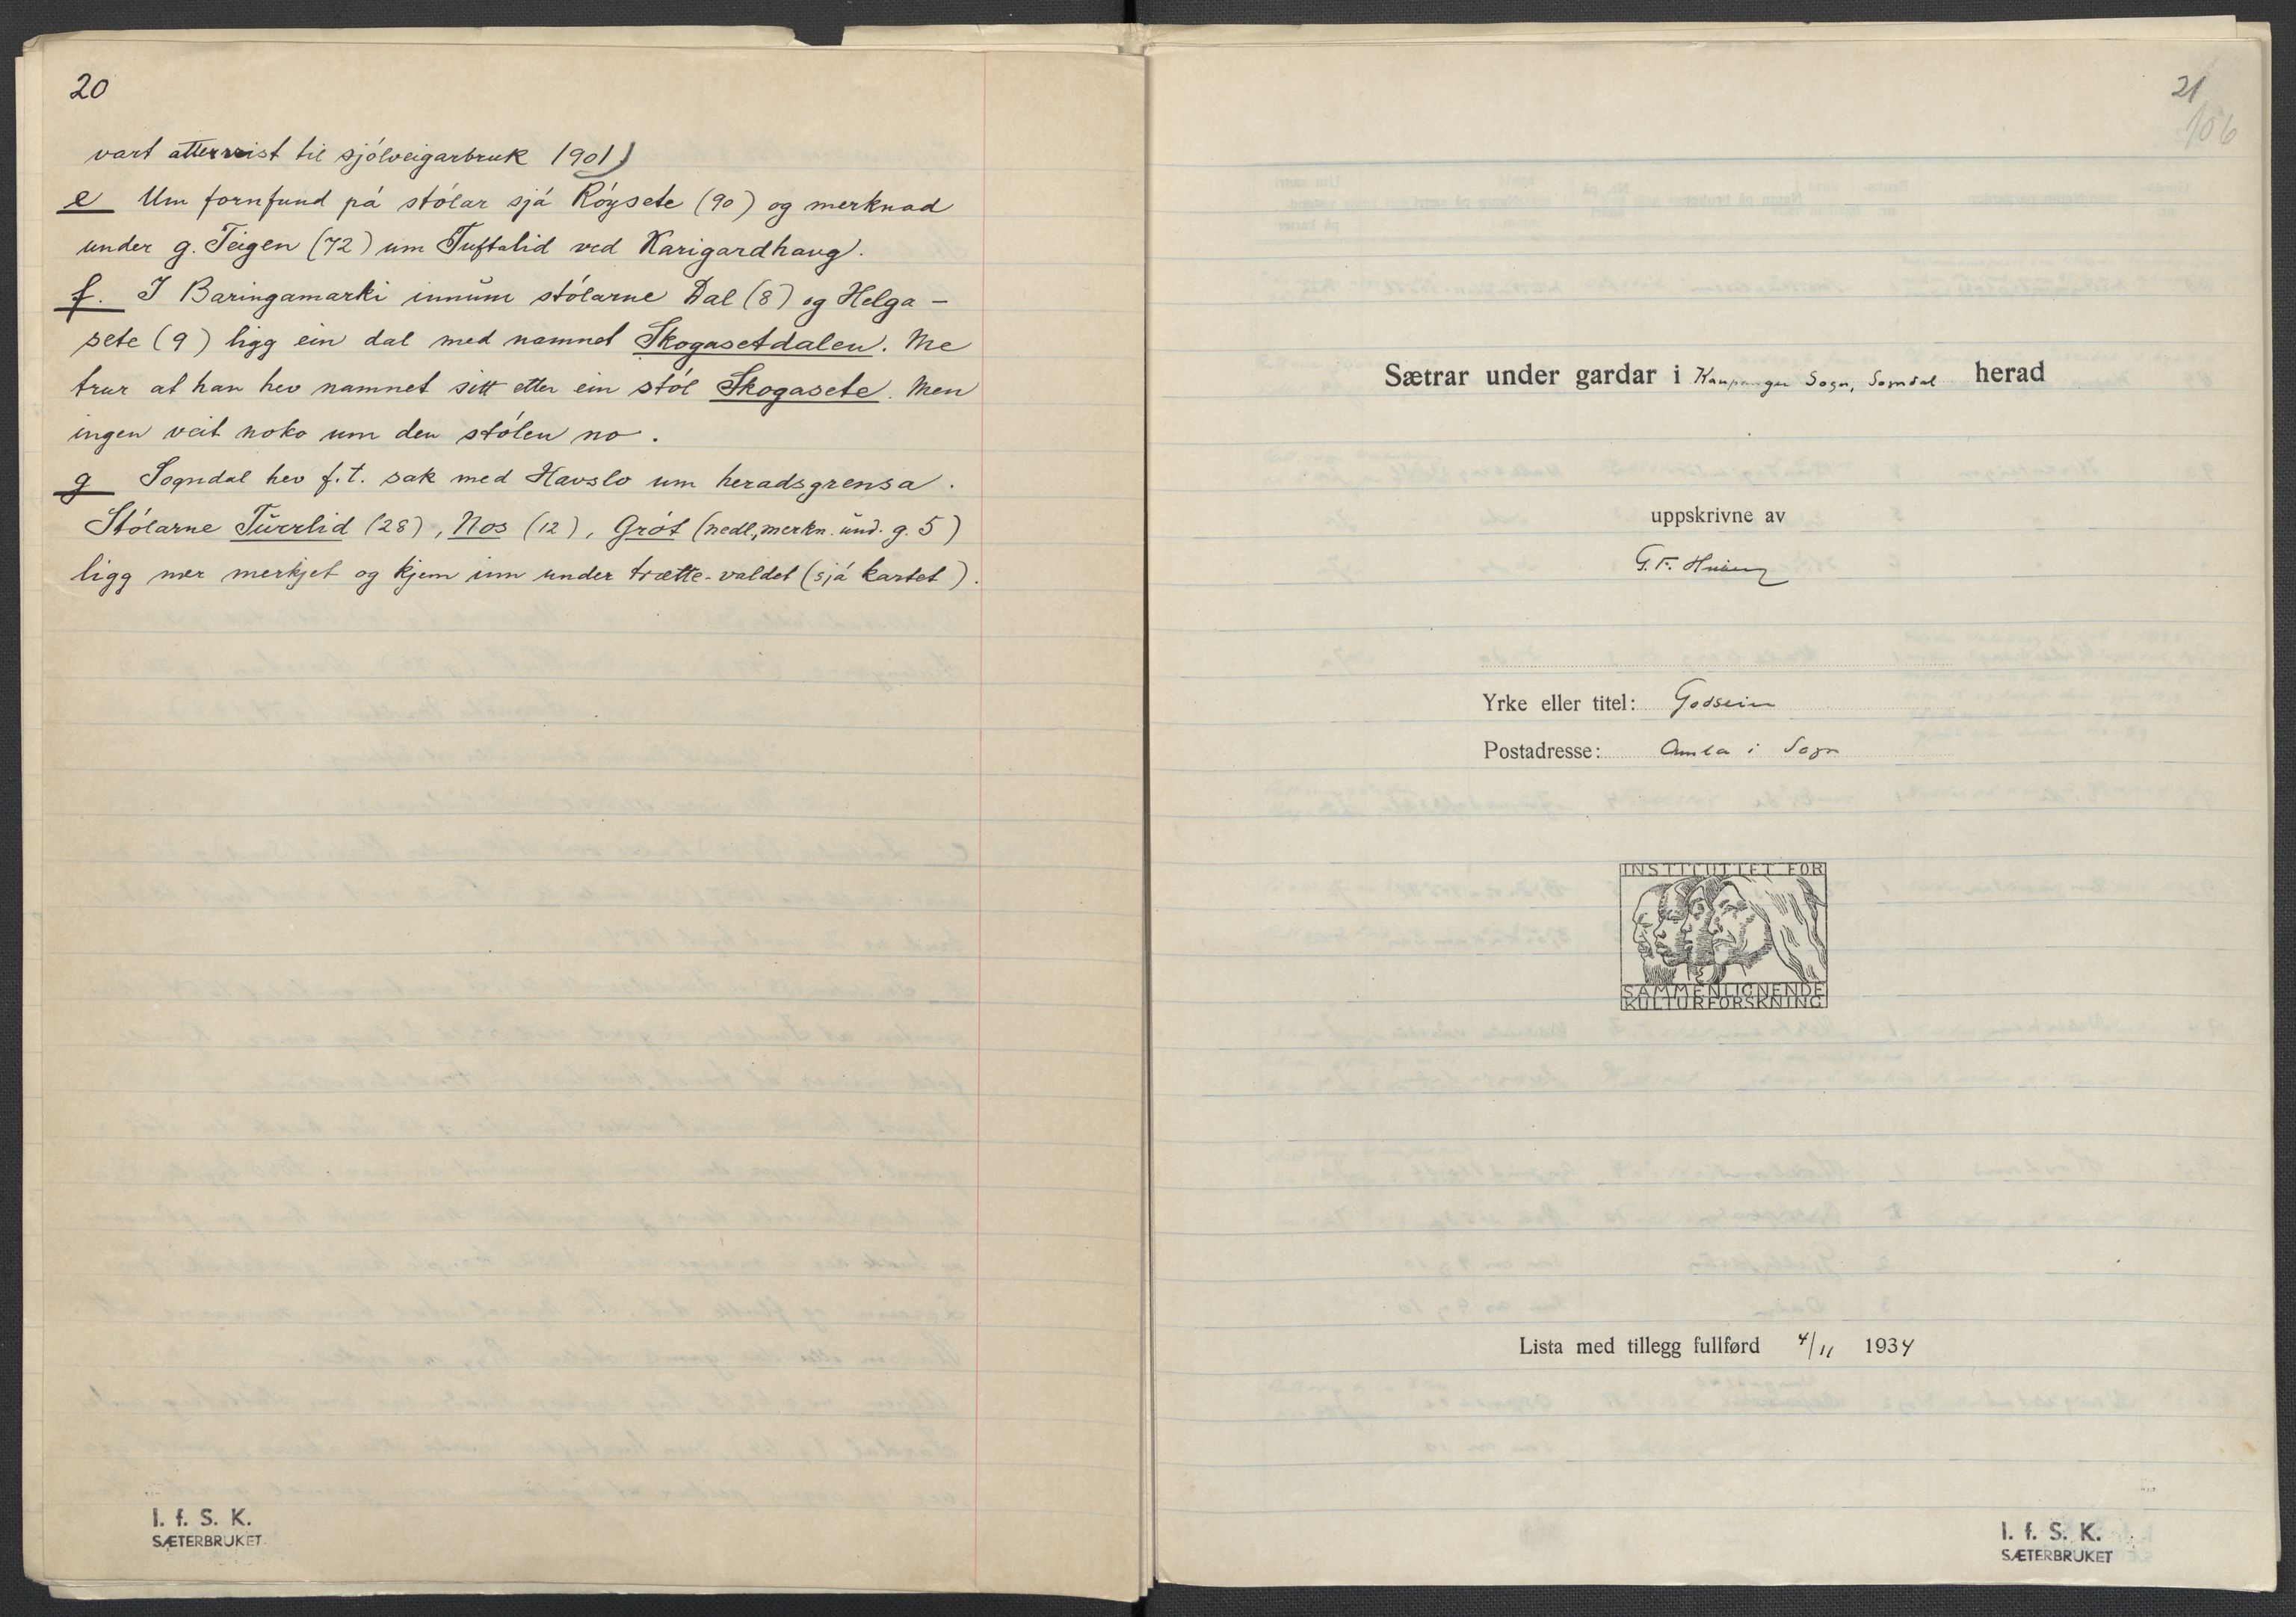 20
vart atterreist til sjólveigarbruk 1901)
e Um fornfund på stólar sjå Róysete (90) og merknad
under g. Teigen (72) um Tuftalid ved Karigardhaug.
f. I Baringamarki innum stólarne Dal (8) og Helga-
sete (9) ligg ein dal med namnet Skogasetdalen. Me
trur at han hev namnet sitt etter ein stól Skogasete. Men
ingen veit noko um den stólen no.
g Sogndal hev f.t. sak med Havslo um heradsgrensa.
Stólarne Turrlid (28), Nos (12), Grót (nedl., merkn. und. g. 5)
ligg nær merkjet og kjem inn under trætte-valdet (sjå kartet).
I. f. S. K.
SÆTERBRUKET
21
106
Sætrar under gardar i Kaupanger Sogn, Sogndal herad
uppskrivne av
G. F. Heiberg
Yrke eller titel: Godseier
Postadresse: Amla i Sogn
INSTITUTTET FOR
SAMMENLIGNENDE
KULTURFORSKNING
Lista med tillegg fullførd 4/11 1934
I. f. S. K.
SÆTERBRUKET